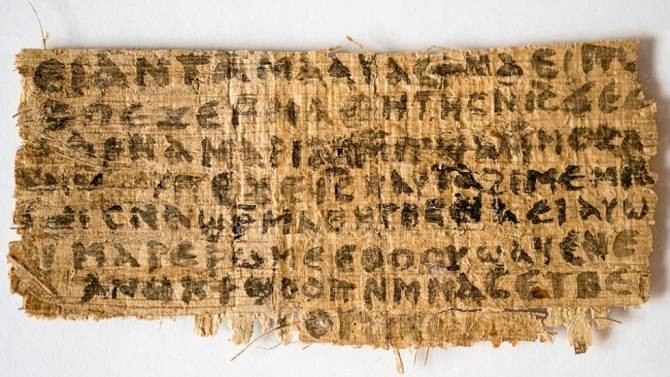 ⲉⲓ ⲁⲛ ⲧⲁⲙⲁⲁⲩ ⲁⲥϯ ⲛⲁⲉⲓ
ⲡⲉϫⲉ ⲙⲙⲁⲑⲏⲧⲏⲥ ⲛⲓⲥ ϫⲉ
ⲁⲣⲛⲁ ⲙⲁⲣⲓⲁⲙ ⲙⲡϣⲁ ⲙⲙⲟⲥ
ⲡⲉϫⲉ ⲓⲥ ⲛⲁⲩ ⲧⲁϩⲓⲙⲉ ⲙⲛ
ⲥⲛⲁϣⲣ ⲙⲁⲑⲏⲧⲏⲥ ⲛⲁⲉⲓ ⲁⲩⲱ
ⲓ ⲙⲁⲣⲉ ⲣⲱⲙⲉ ⲉⲑⲟⲟⲩ ϣⲁϥⲉ ⲛⲉ
ⲁⲛⲟⲕ ϯϣⲟⲟⲡ ⲛⲙⲙⲁⲥ ⲉⲧⲃⲉ